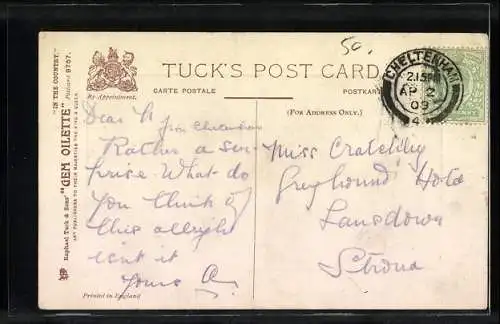 "IN THE COUNTRY."
"GEM OILETTE" Postcard 9767.
Raphael Tuck & Sons'
ART PUBLISHERS TO THEIR MAJESTIES THE KING & QUEEN.
By Appointment.
50.
TUCK'S POST CARD
CARTE POSTALE
POSTKARTE
(FOR ADDRESS ONLY.)
CHELTENHAM
2.15PM
AP 2
09
4
Dear
from Cheltenham
Rather a sur-
prise. What do
you think of
this allright
isnt it
Yours
Miss
Greyhound Hotel
Lansdown
Stroud
Printed in England